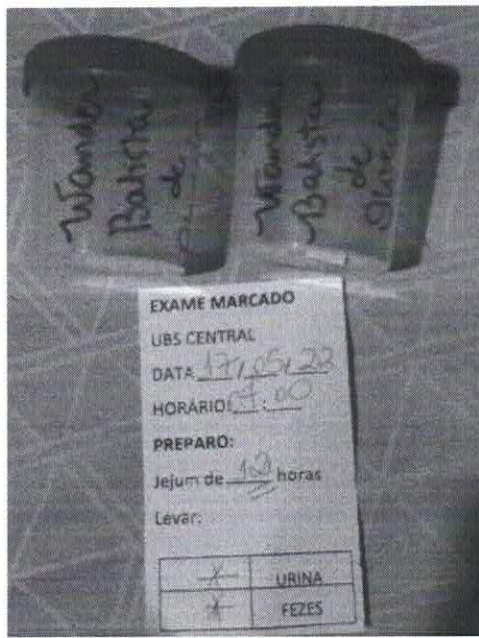 Wander
Batista
de
Wander
Batista
de
EXAME MARCADO
UBS CENTRAL
DATA 17/05/22
HORÁRIO : 00
PREPARO:
Jejum de 12 horas
Levar:
X URINA
X FEZES